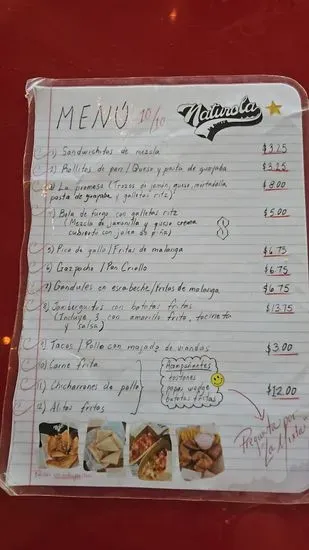 MENÚ 10/10
Naturola
1) Sandwichitos de mezcla $3.25
2) Rollitos de pan/Queso y pasta de guayaba $3.25
3) La promesa (Trozos de jamón, queso, mortadella, $8.00
pasta de guayaba y galletas ritz)
4) Bola de fuego con galletas ritz $5.00
(Mezcla de jamonilla y queso crema
cubierto con jalea de piña)
5) Pico de gallo/Fritas de malanga $6.75
6) Gazpacho/Pan Criollo $6.75
7) Gandules en escabeche/fritas de malanga $6.75
8) Jamberguitos con batatas fritas $13.75
(Incluye 3 con amarillo frito, tocineta
y salsa)
9) Tacos/Pollo con majado de viandas $3.00
10) Carne frita
11) Chicharrones de pollo $12.00
12) Alitas fritas
Acompañantes
tostones
papas wedge
batatas fritas
Pregunta por
La